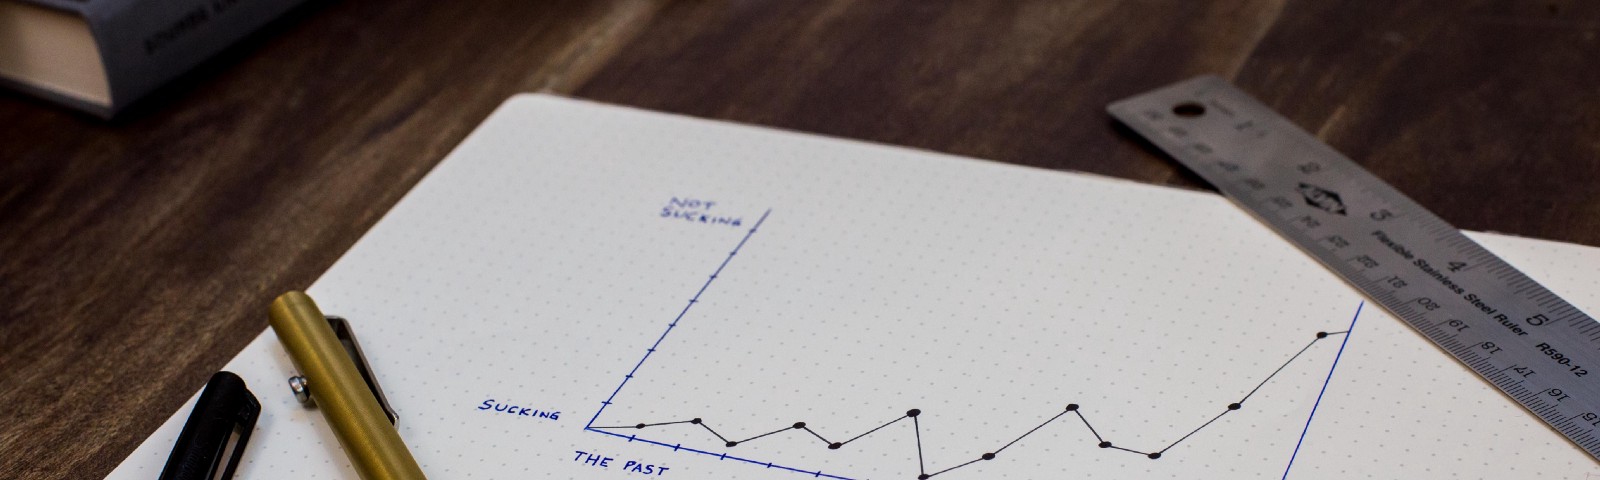 NOT
SUCKING
SUCKING
THE PAST
1
2
3
4
5
Flexible Stainless Steel Ruler R590-12
24
23
22
21
20
19
18
17
16